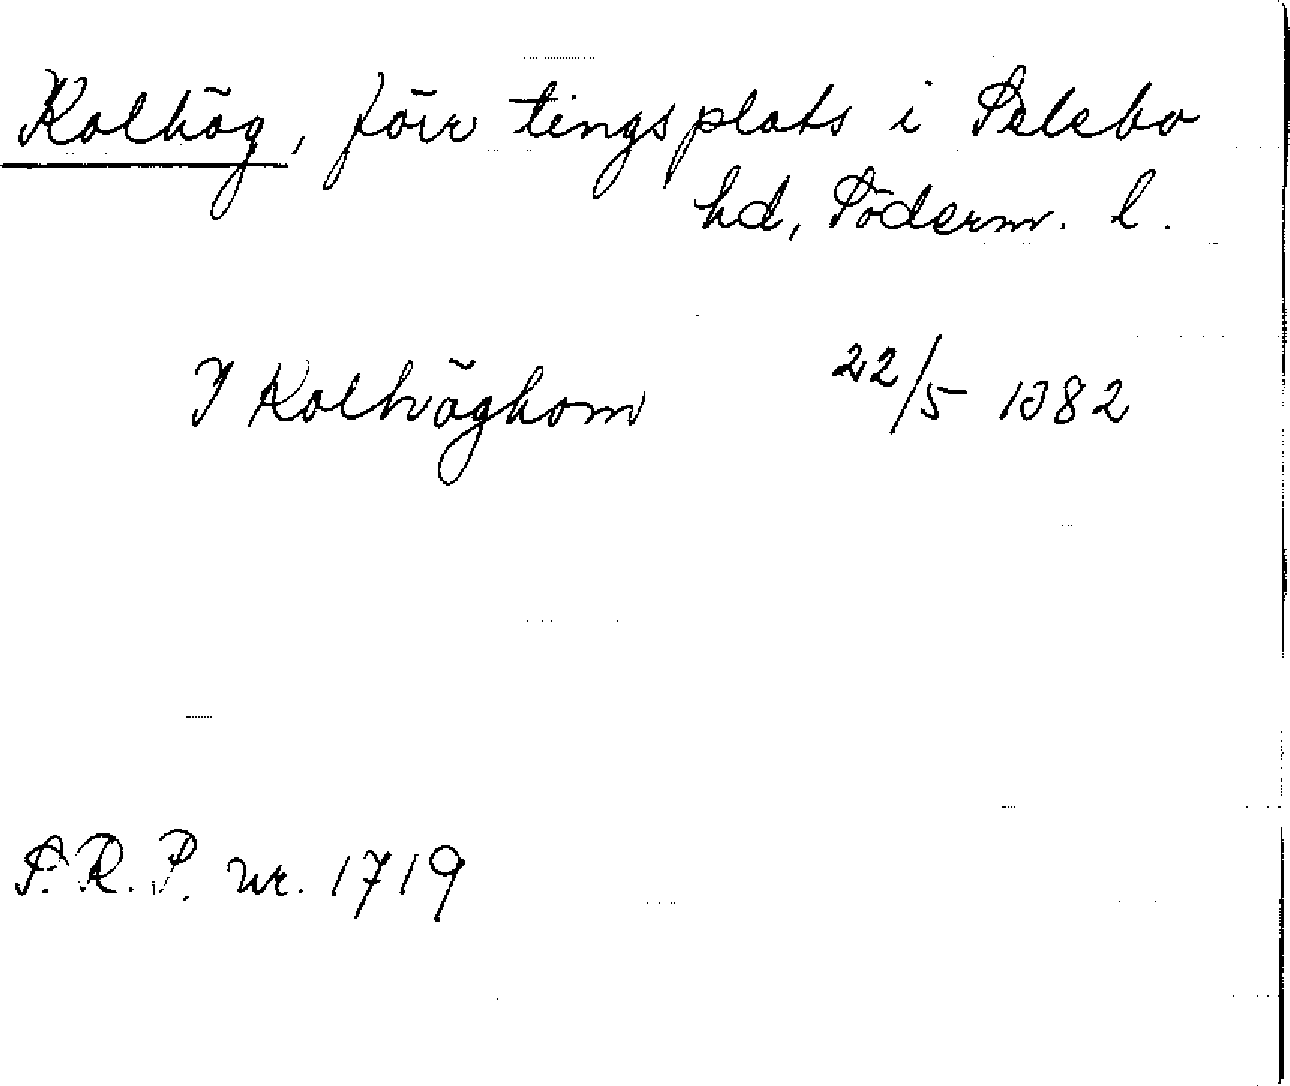 Kolhög, förr tingsplats i Selebo
hd, Söderm. l.
J Kolhöghom 22/5 1382
S. R. P. nr. 1719